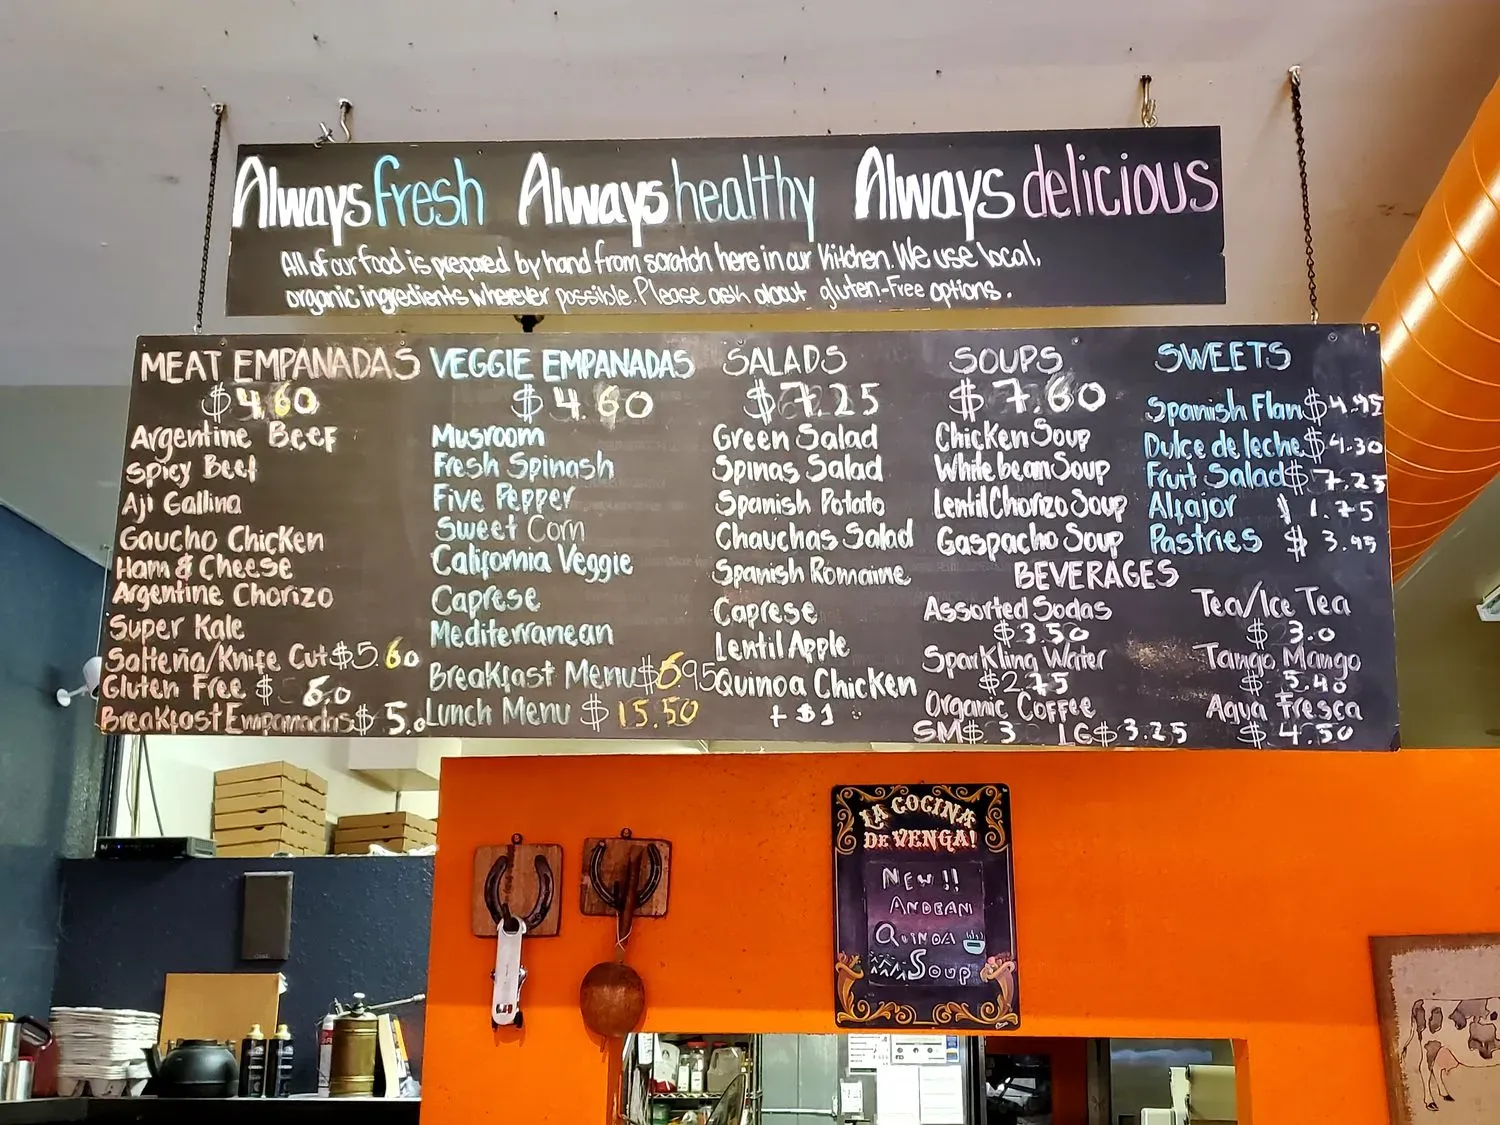 Always fresh Always healthy Always delicious
All of our food is prepared by hand from scratch here in our kitchen. We use local,
organic ingredients wherever possible. Please ask about gluten-free options.
MEAT EMPANADAS
$4.60
Argentine Beef
Spicy Beef
Aji Gallina
Gaucho Chicken
Ham & Cheese
Argentine Chorizo
Super Kale
Salteña/Knife Cut $5.60
Gluten Free $ 6.0
Breakfast Empanadas $ 5.0
VEGGIE EMPANADAS
$4.60
Musroom
Fresh Spinash
Five Pepper
Sweet Corn
California Veggie
Caprese
Mediterranean
Breakfast Menu $6.95
Lunch Menu $15.50
SALADS
$7.25
Green Salad
Spinas Salad
Spanish Potato
Chauchas Salad
Spanish Romaine
Caprese
Lentil Apple
Quinoa Chicken
+ $1
SOUPS
$7.60
Chicken Soup
White bean Soup
Lentil Chorizo Soup
Gaspacho Soup
SWEETS
Spanish Flan $4.95
Dulce de leche $4.30
Fruit Salad $ 7.25
Alfajor $ 1.75
Pastries $ 3.95
BEVERAGES
Assorted Sodas
$3.50
Sparkling Water
$2.75
Organic Coffee
SM $ 3 LG $ 3.25
Tea/Ice Tea
$ 3.0
Tango Mango
$ 5.40
Agua Fresca
$ 4.50
LA COCINA
DE VENGA!
NEW !!
ANDEAN
QUINOA
SOUP